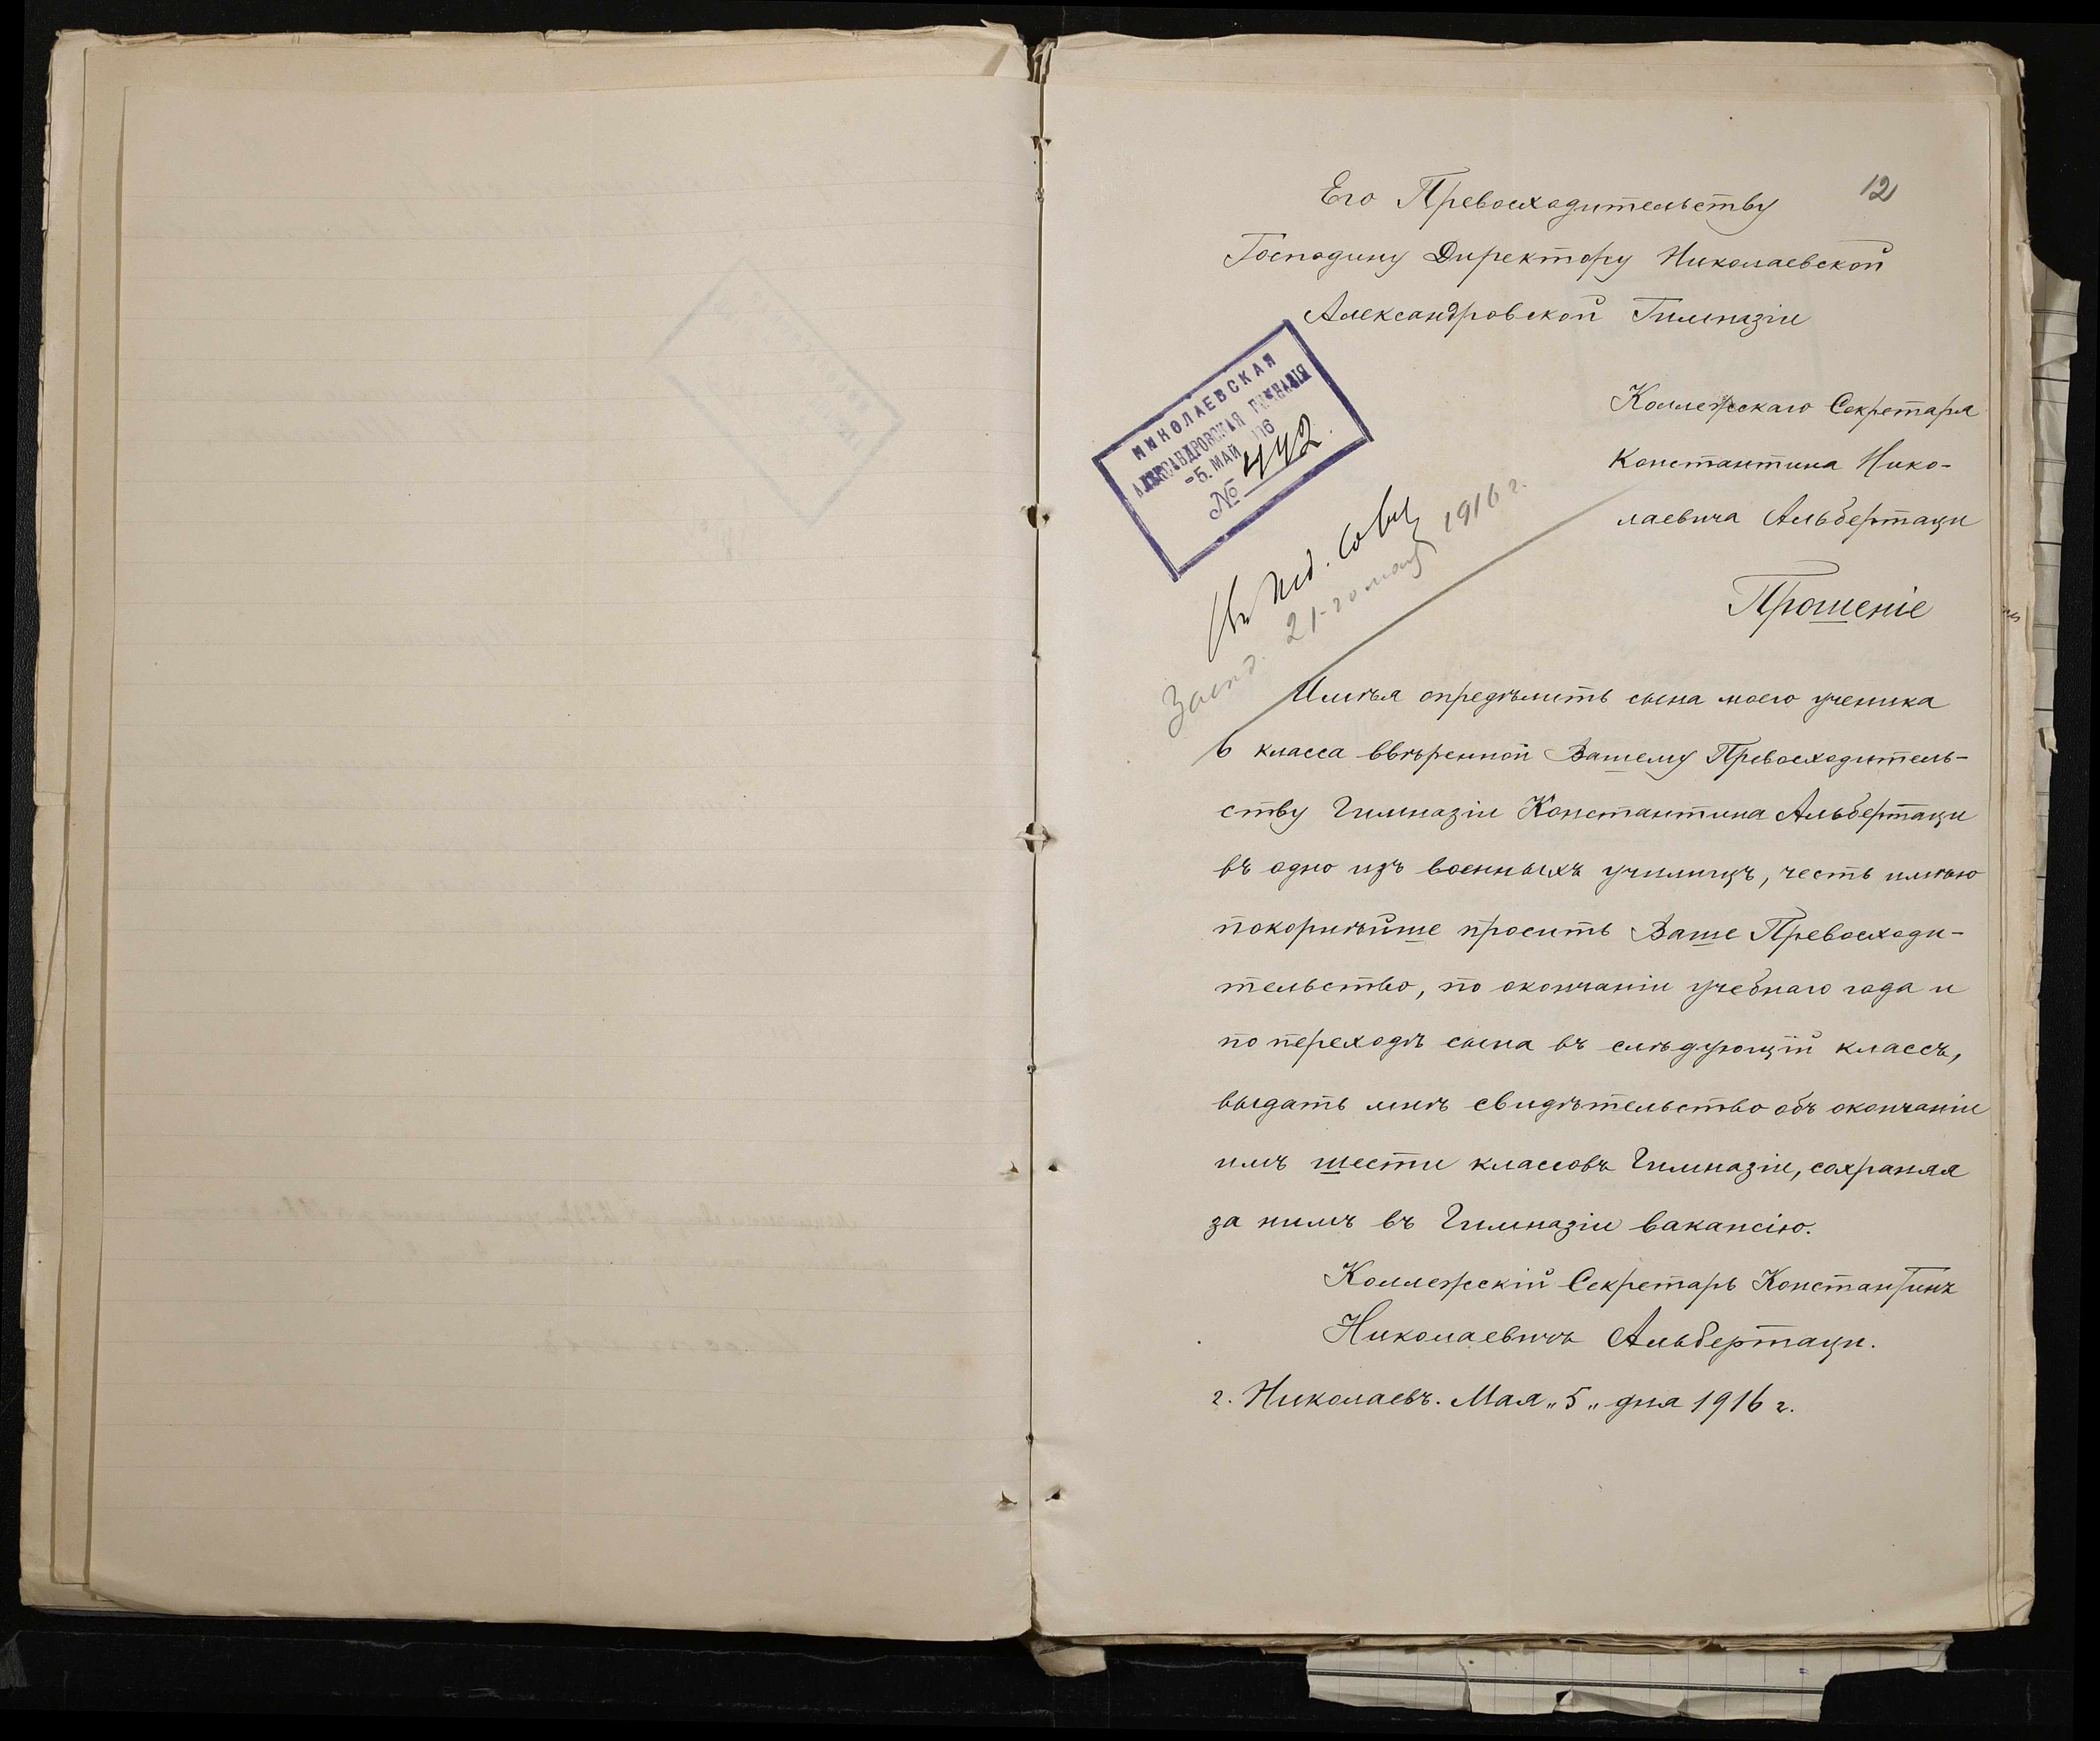 12
Его Превосходительству
Господину Директору Николаевской
Александровской Гимназіи
НИКОЛАЕВСКАЯ
АЛЕКСАНДРОВСКАЯ ГИМНАЗІЯ
-5. МАЙ 916
№ 442.
Коллежскаго Секретаря
Константина Нико-
лаевича Альбертаци
Въ пед. совѣ
Засѣд. 21-го мая 1916 г.
Прошеніе
Имѣя опредѣлить сына моего ученика
6 класса ввѣренной Вашему Превосходитель-
ству Гимназіи Константина Альбертаци
въ одно изъ военныхъ училищъ, честь имѣю
покорнѣйше просить Ваше Превосходи-
тельство, по окончаніи учебнаго года и
по переходѣ сына въ слѣдующій классъ,
выдать мнѣ свидѣтельство объ окончаніи
имъ шести классовъ Гимназіи, сохраняя
за нимъ въ Гимназіи вакансію.
Коллежскій Секретарь Константинъ
Николаевичъ Альбертаци.
г. Николаевъ. Мая „5„ дня 1916 г.